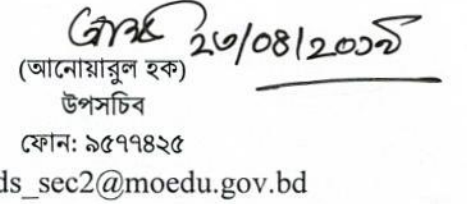 ২৩/০৪/২০১৯
(আনোয়ারুল হক)
উপসচিব
ফোন: ৯৫৭৭৪২৫
ds_sec2@moedu.gov.bd